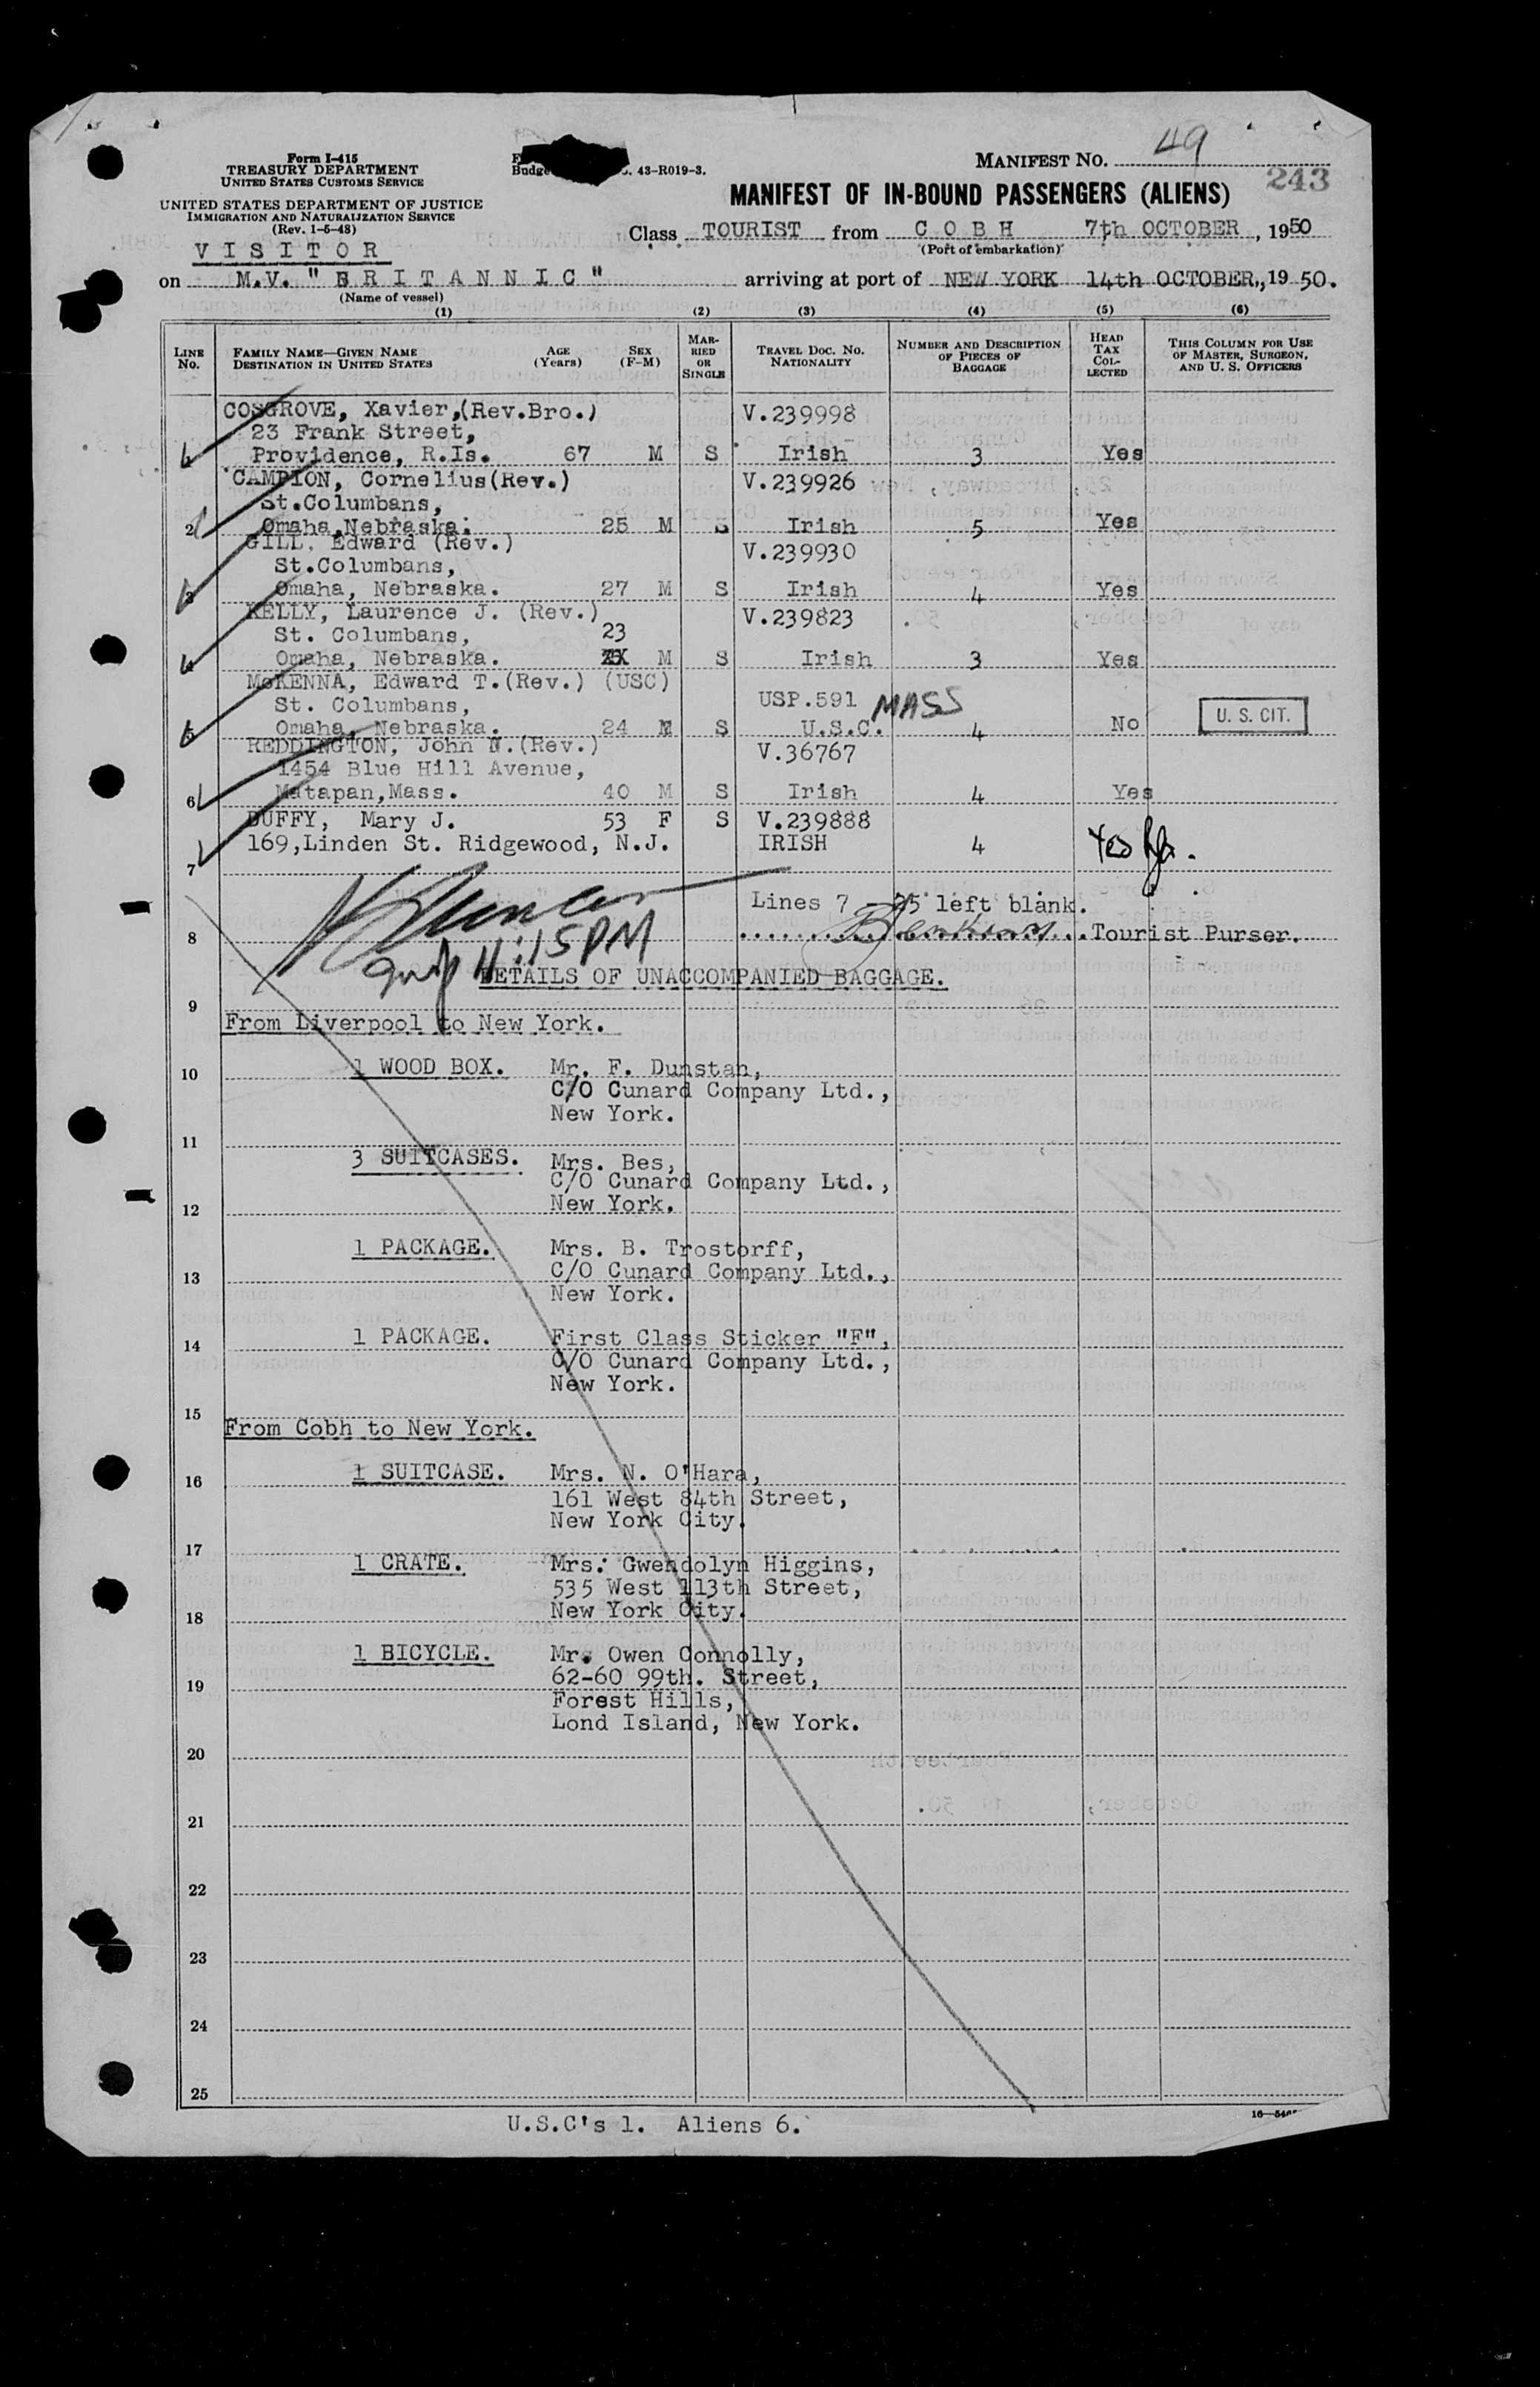 Form I-415
TREASURY DEPARTMENT
UNITED STATES CUSTOMS SERVICE
UNITED STATES DEPARTMENT OF JUSTICE
IMMIGRATION AND NATURALIZATION SERVICE
(Rev. 1-5-48)
Budge 43-R019-3.
MANIFEST NO. 49
243
MANIFEST OF IN-BOUND PASSENGERS (ALIENS)
VISITOR
Class TOURIST from COBH 7th OCTOBER, 1950
(Port of embarkation)
on M.V. "BRITANNIC" arriving at port of NEW YORK 14th OCTOBER, 1950.
(Name of vessel)
(1) (2) (3) (4) (5) (6)
LINE NO.
FAMILY NAME—GIVEN NAME
DESTINATION IN UNITED STATES
AGE (Years)
SEX (F-M)
MARRIED OR SINGLE
TRAVEL DOC. NO. NATIONALITY
NUMBER AND DESCRIPTION OF PIECES OF BAGGAGE
HEAD TAX COLLECTED
THIS COLUMN FOR USE OF MASTER, SURGEON, AND U. S. OFFICERS
COSGROVE, Xavier,(Rev.Bro.) V.239998
23 Frank Street,
Providence, R.Is. 67 M S Irish 3 Yes
CAMPION, Cornelius(Rev.) V.239926
St.Columbans,
2 Omaha,Nebraska. 25 M S Irish 5 Yes
GILL, Edward (Rev.) V.239930
St.Columbans,
3 Omaha, Nebraska. 27 M S Irish 4 Yes
KELLY, Laurence J. (Rev.) V.239823
St. Columbans, 23
4 Omaha, Nebraska. M S Irish 3 Yes
McKENNA, Edward T.(Rev.) (USC) USP.591 MASS
St. Columbans,
5 Omaha, Nebraska. 24 M S U.S.C. 4 No U. S. CIT.
REDDINGTON, John N.(Rev.) V.36767
1454 Blue Hill Avenue,
6 Matapan,Mass. 40 M S Irish 4 Yes
DUFFY, Mary J. 53 F S V.239888
169,Linden St. Ridgewood, N.J. IRISH 4 Yes
7
Lines 7 - 25 left blank.
8 Tourist Purser.
11:15 PM
DETAILS OF UNACCOMPANIED BAGGAGE.
9
From Liverpool to New York.
10 1 WOOD BOX. Mr. F. Dunstan,
C/O Cunard Company Ltd.,
New York.
11
3 SUITCASES. Mrs. Bes,
C/O Cunard Company Ltd.,
12 New York.
1 PACKAGE. Mrs. B. Trostorff,
13 C/O Cunard Company Ltd.,
New York.
14 1 PACKAGE. First Class Sticker "F",
C/O Cunard Company Ltd.,
New York.
15
From Cobh to New York.
16 1 SUITCASE. Mrs. N. O'Hara,
161 West 84th Street,
New York City.
17
1 CRATE. Mrs. Gwendolyn Higgins,
535 West 113th Street,
18 New York City.
1 BICYCLE. Mr. Owen Connolly,
19 62-60 99th. Street,
Forest Hills,
Lond Island, New York.
20
21
22
23
24
25
U.S.C's 1. Aliens 6.